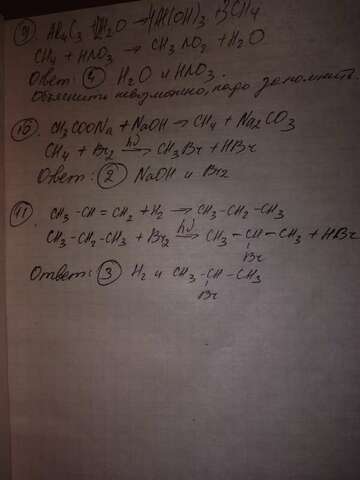 9) Al4C3 + 12H2O → 4Al(OH)3 + 3CH4
CH4 + HNO3 → CH3NO2 + H2O
Ответ: 4 H2O и HNO3.
Объяснить невозможно, надо запомнить.
10) CH3COONa + NaOH → CH4 + Na2CO3
CH4 + Br2 hν→ CH3Br + HBr
Ответ: 2 NaOH и Br2
11) CH3-CH=CH2 + H2 → CH3-CH2-CH3
CH3-CH2-CH3 + Br2 hν→ CH3-CH-CH3 + HBr
Br
Ответ: 3 H2 и CH3-CH-CH3
Br